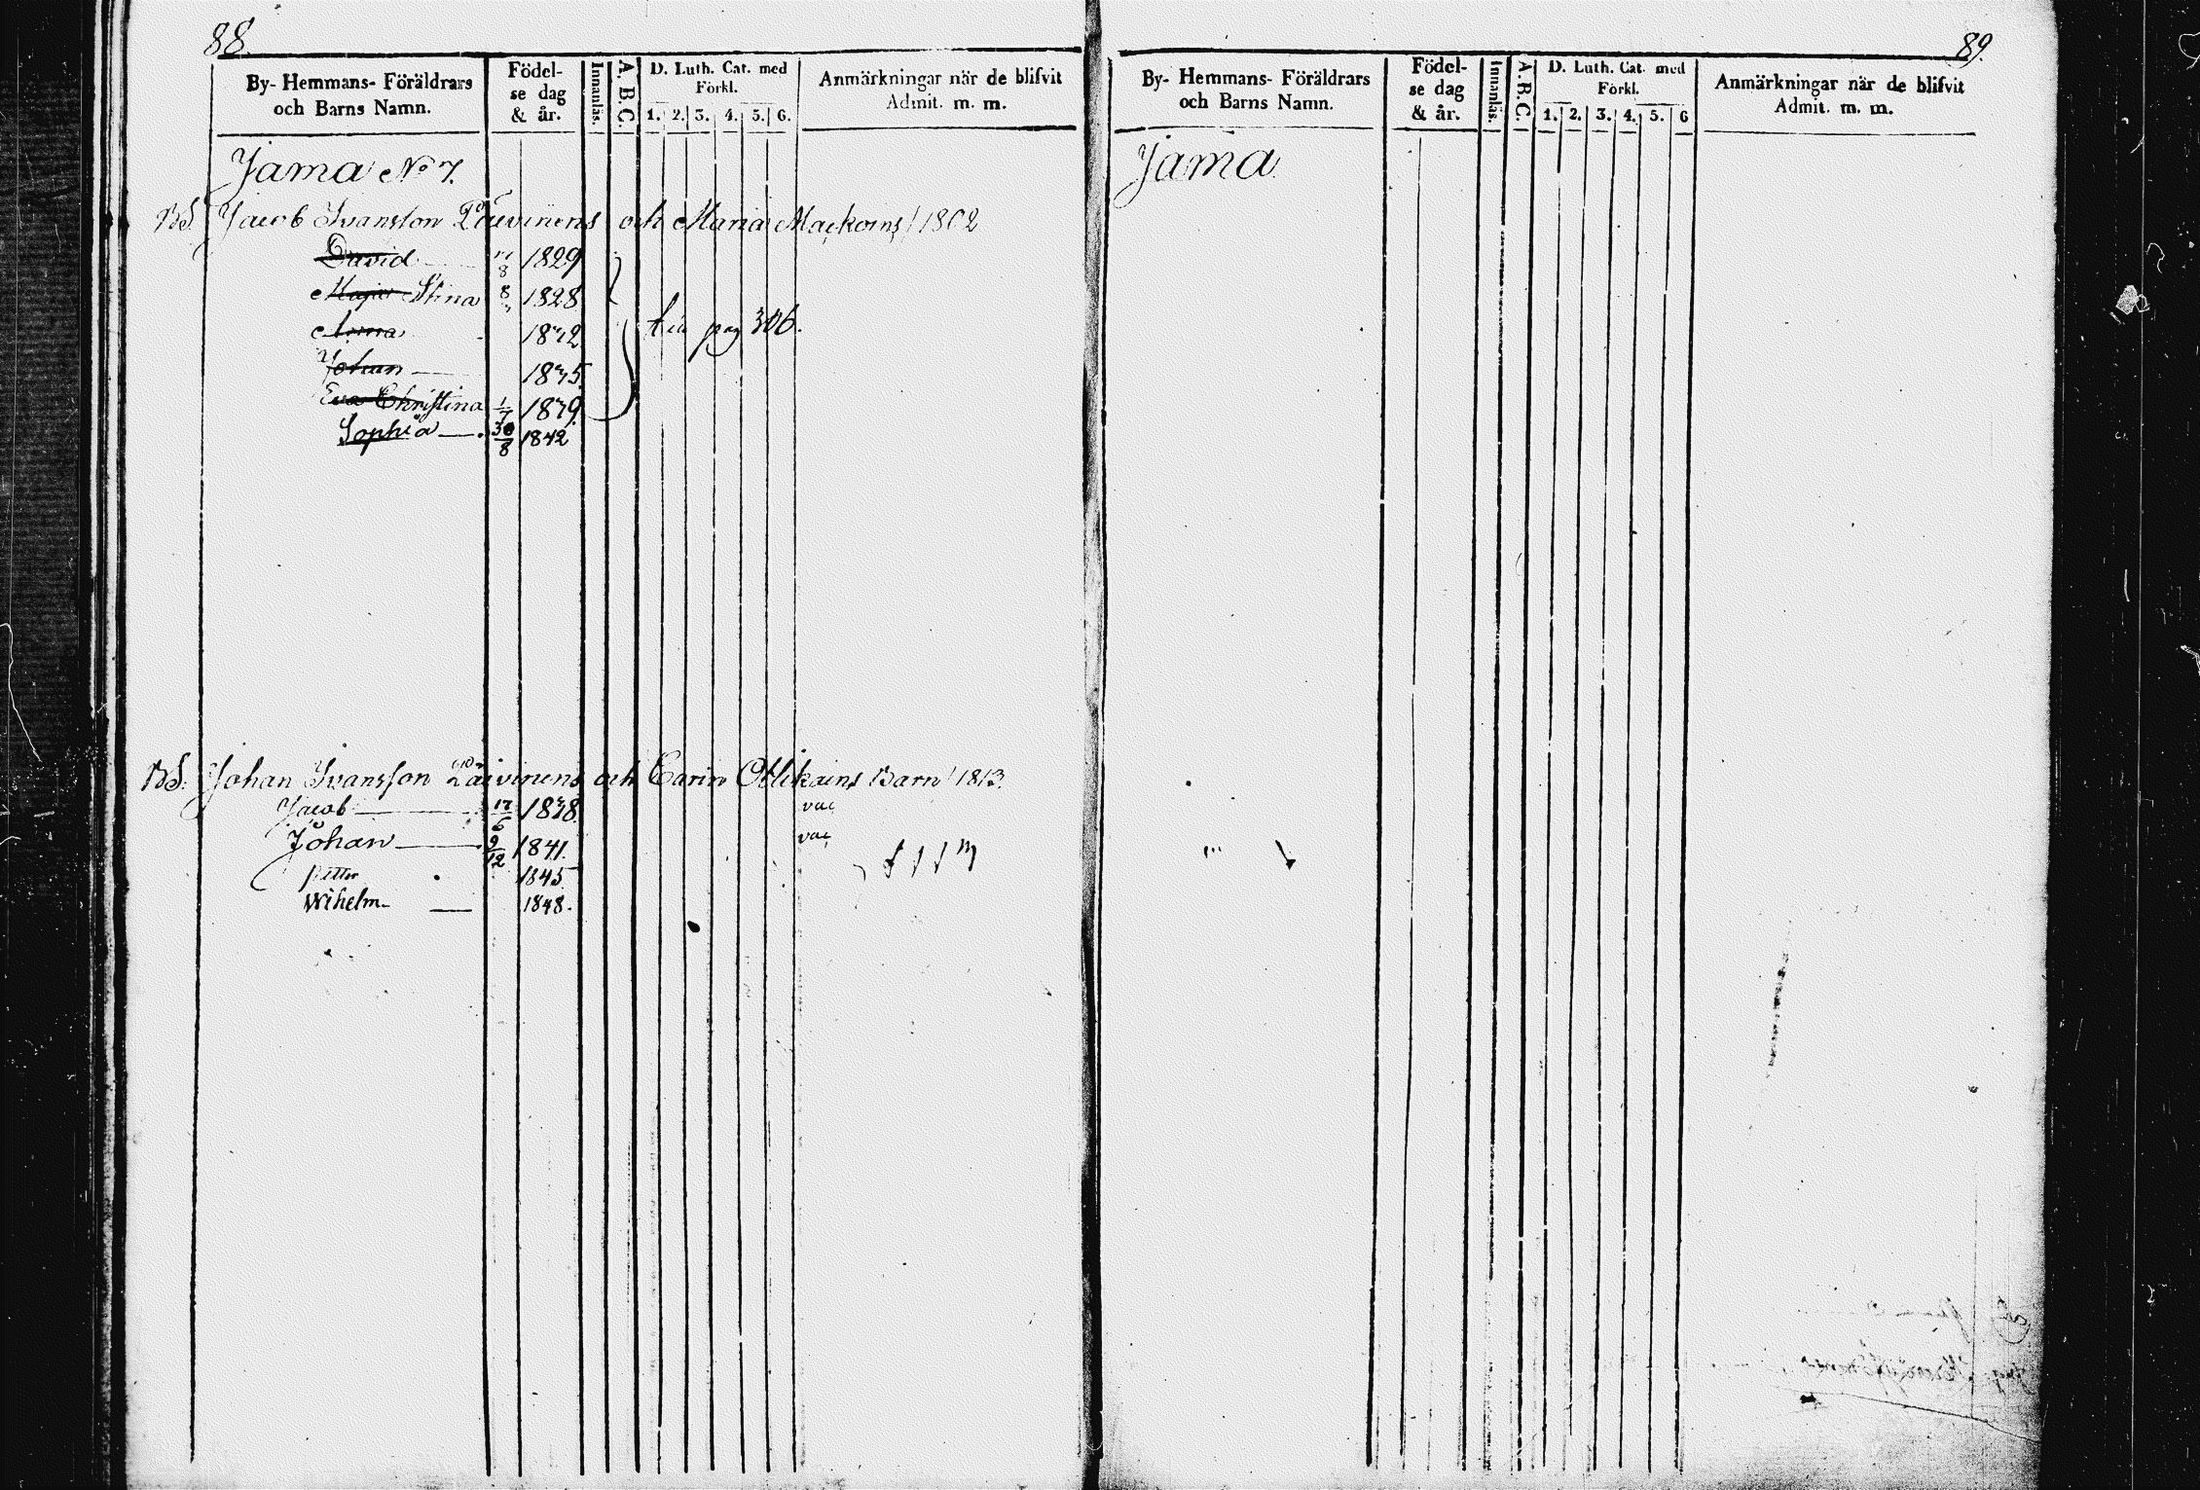 88.
By- Hemmans- Föräldrars och Barns Namn.
Födelse dag & år.
Innanläs.
A. B. C.
D. Luth. Cat. med Förkl.
1. 2. 3. 4. 5. 6.
Anmärkningar när de blifvit Admit. m. m.
Jama No 7.
BS. Jacob Ivansson Päivinens och Maria 1802
David 8 1829
Maria Stina 8 1828
Anna 1832
Johan 1835
Eva Christina 1/7 1839
Sophia 30/8 1842
pag 306.
BS. Johan Ivansson Päivinens och Carin Ollikains Barn 1813.
Jacob 17/6 1838 vac
Johan 9/12 1841. vac
petter 1845
Wihelm 1848.
89.
By- Hemmans- Föräldrars och Barns Namn.
Födelse dag & år.
Innanläs.
A. B. C.
D. Luth. Cat. med Förkl.
1. 2. 3. 4. 5. 6
Anmärkningar när de blifvit Admit. m. m.
Jama